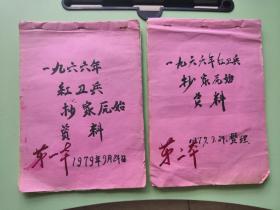 一九六六年
红卫兵
抄家原始
资料
第一本
1979年9月24日
一九六六年红卫兵
抄家原始
资料
第二本
1977.9.24.整理